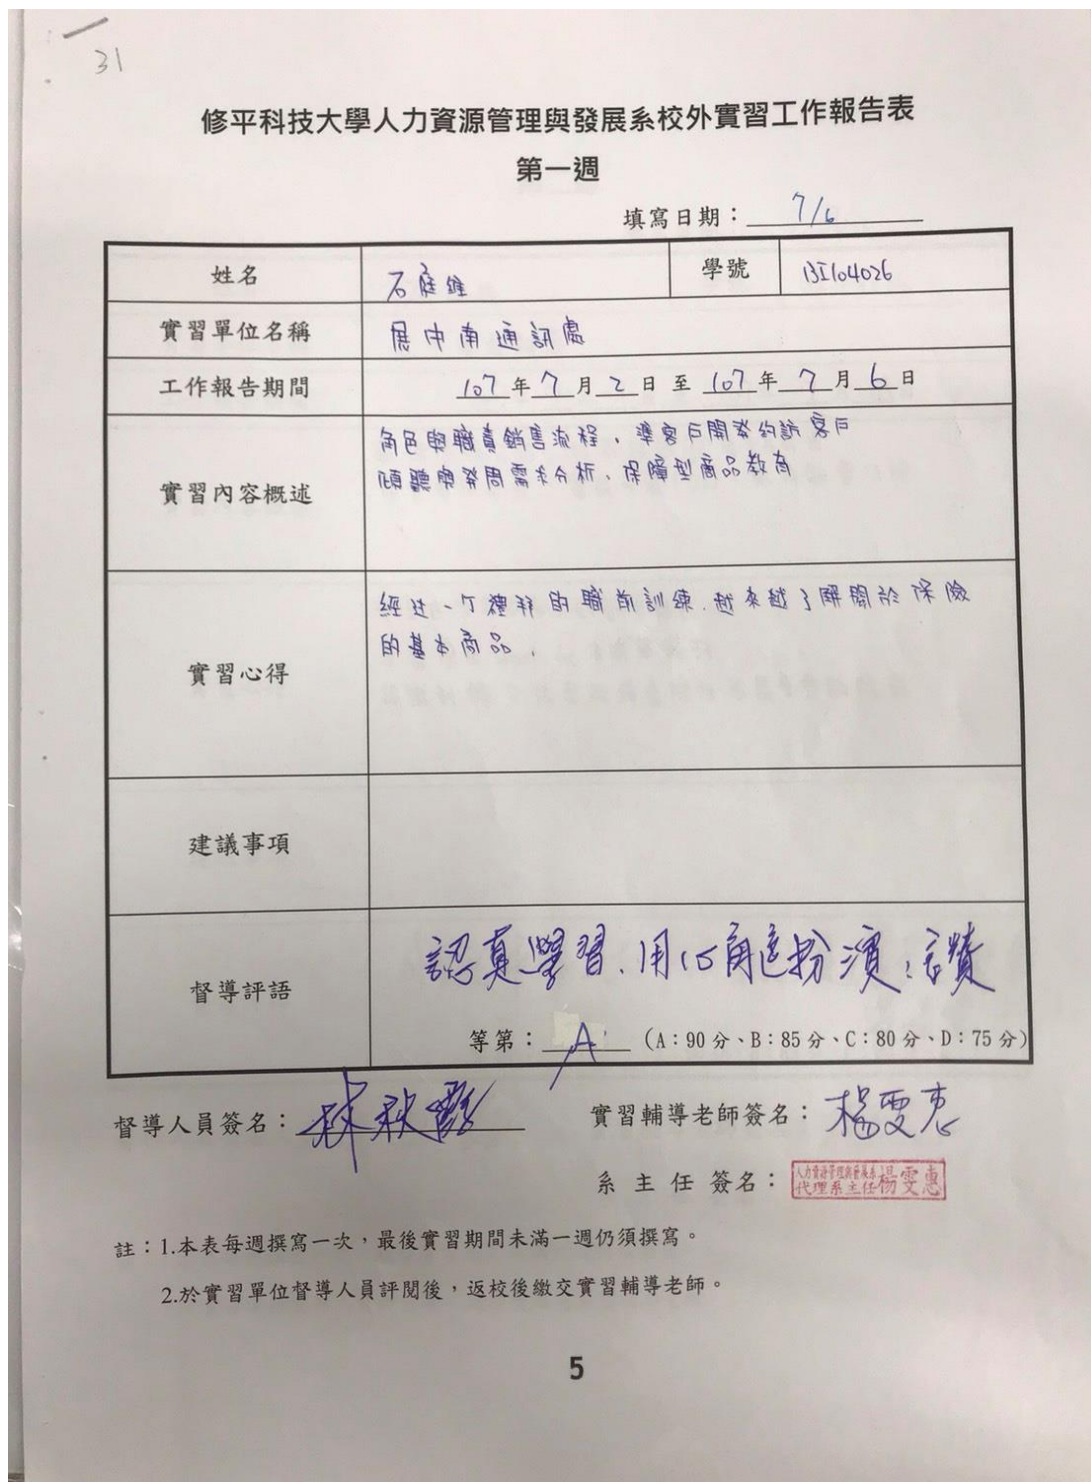 31
修平科技大學人力資源管理與發展系校外實習工作報告表
第一週
填寫日期：7/6
姓名 石庭維 學號 BI104026
實習單位名稱 展中南通訊處
工作報告期間 107年7月2日至107年7月6日
角色與職責銷售流程、準客戶開發約訪客戶
實習內容概述 傾聽與發問需求分析、保障型商品教育
經过一个禮拜的職前訓練.越來越了解關於保險
的基本商品.
實習心得
建議事項
認真學習、用心角色扮演，讚
督導評語
等第：A（A：90分、B：85分、C：80分、D：75分）
督導人員簽名：林秋 實習輔導老師簽名：楊雯惠
系主任 簽名：人力資源管理與發展系代理系主任楊雯惠
註：1.本表每週撰寫一次，最後實習期間未滿一週仍須撰寫。
2.於實習單位督導人員評閱後，返校後繳交實習輔導老師。
5